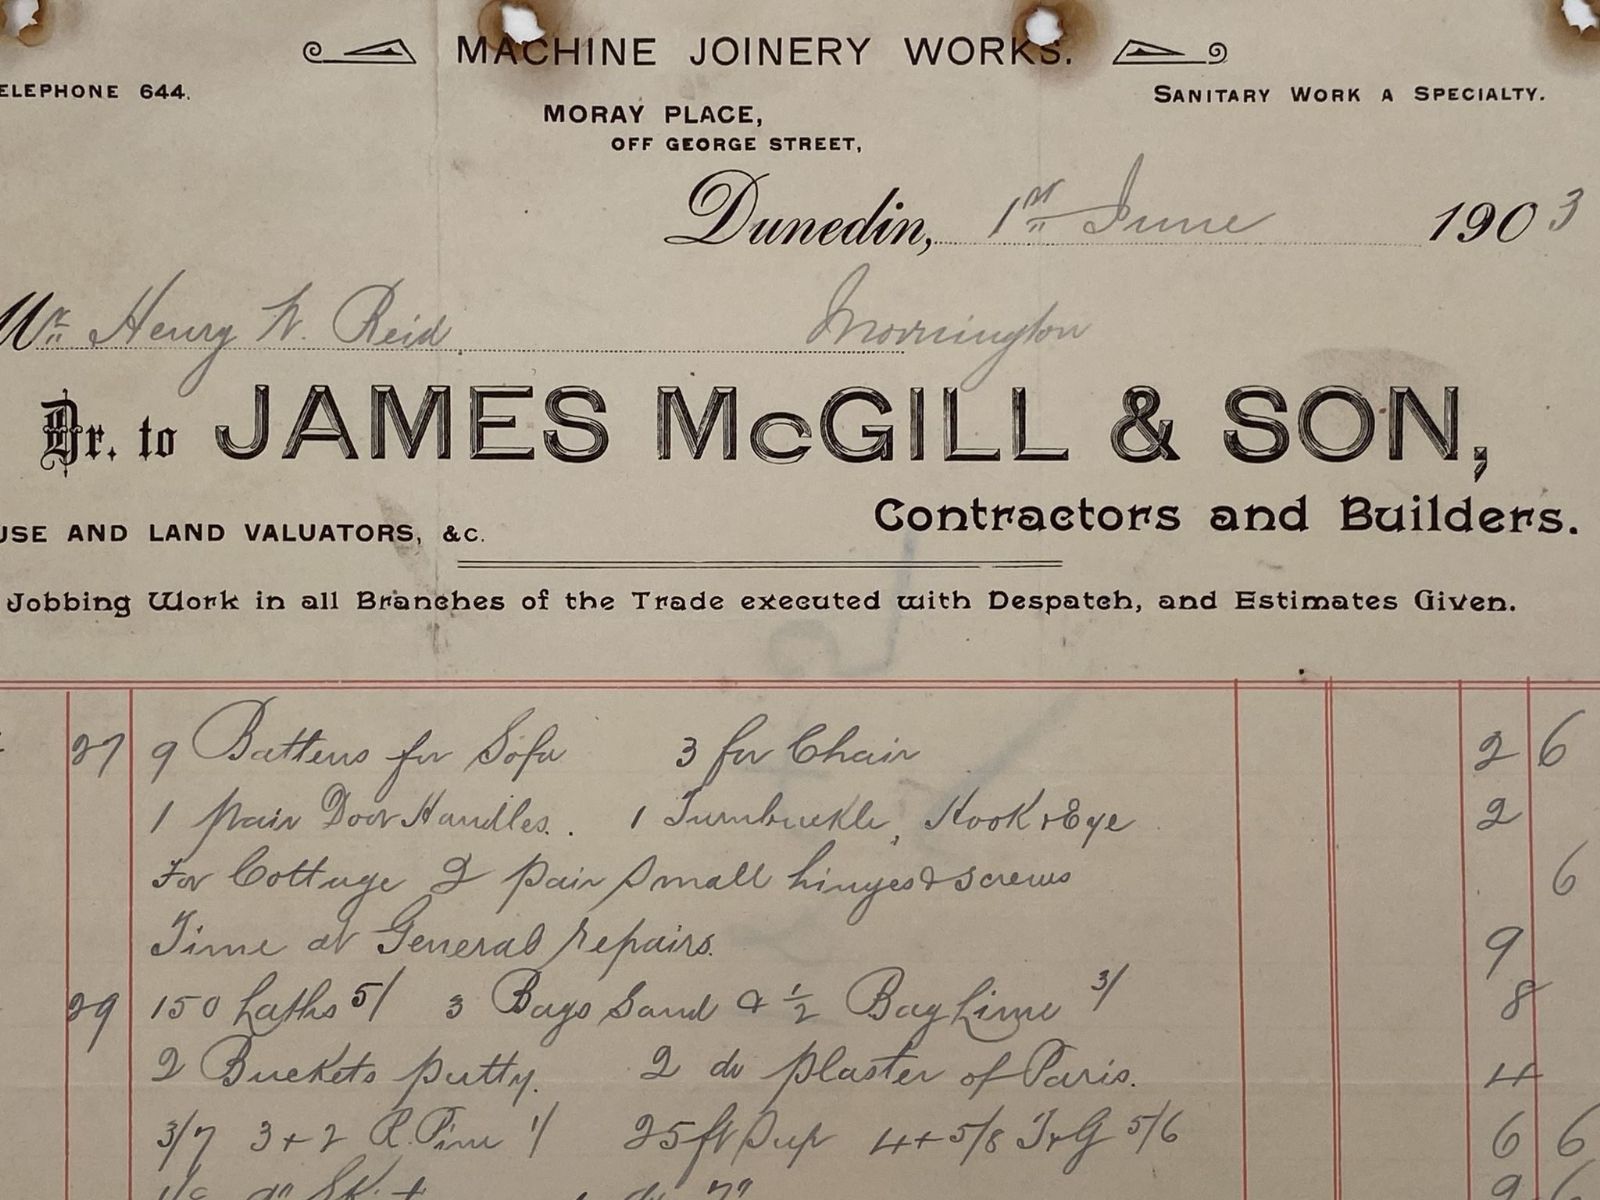 MACHINE JOINERY WORKS.
ELEPHONE 644.
SANITARY WORK A SPECIALTY.
MORAY PLACE,
OFF GEORGE STREET,
Dunedin, 1st June 1903
Mr Henry W. Reid Mornington
Dr. to JAMES McGILL & SON,
USE AND LAND VALUATORS, &C.
Contractors and Builders.
Jobbing Work in all Branches of the Trade executed with Despatch, and Estimates Given.
27 9 Battens for Sofa 3 for Chair 2 6
1 pair Door Handles. 1 Turnbuckle, Hook & Eye 2
For Cottage 2 pair small hinges & screws 6
Time at General repairs. 9
29 150 Laths 5/ 3 Bags Sand & 1/2 Bag Lime 3/ 8
2 Buckets putty. 2 do plaster of Paris. 4
3/7 3 + 2 R. Pine 1/ 25ft Sup 4 + 5/8 T & G 5/6 6 6